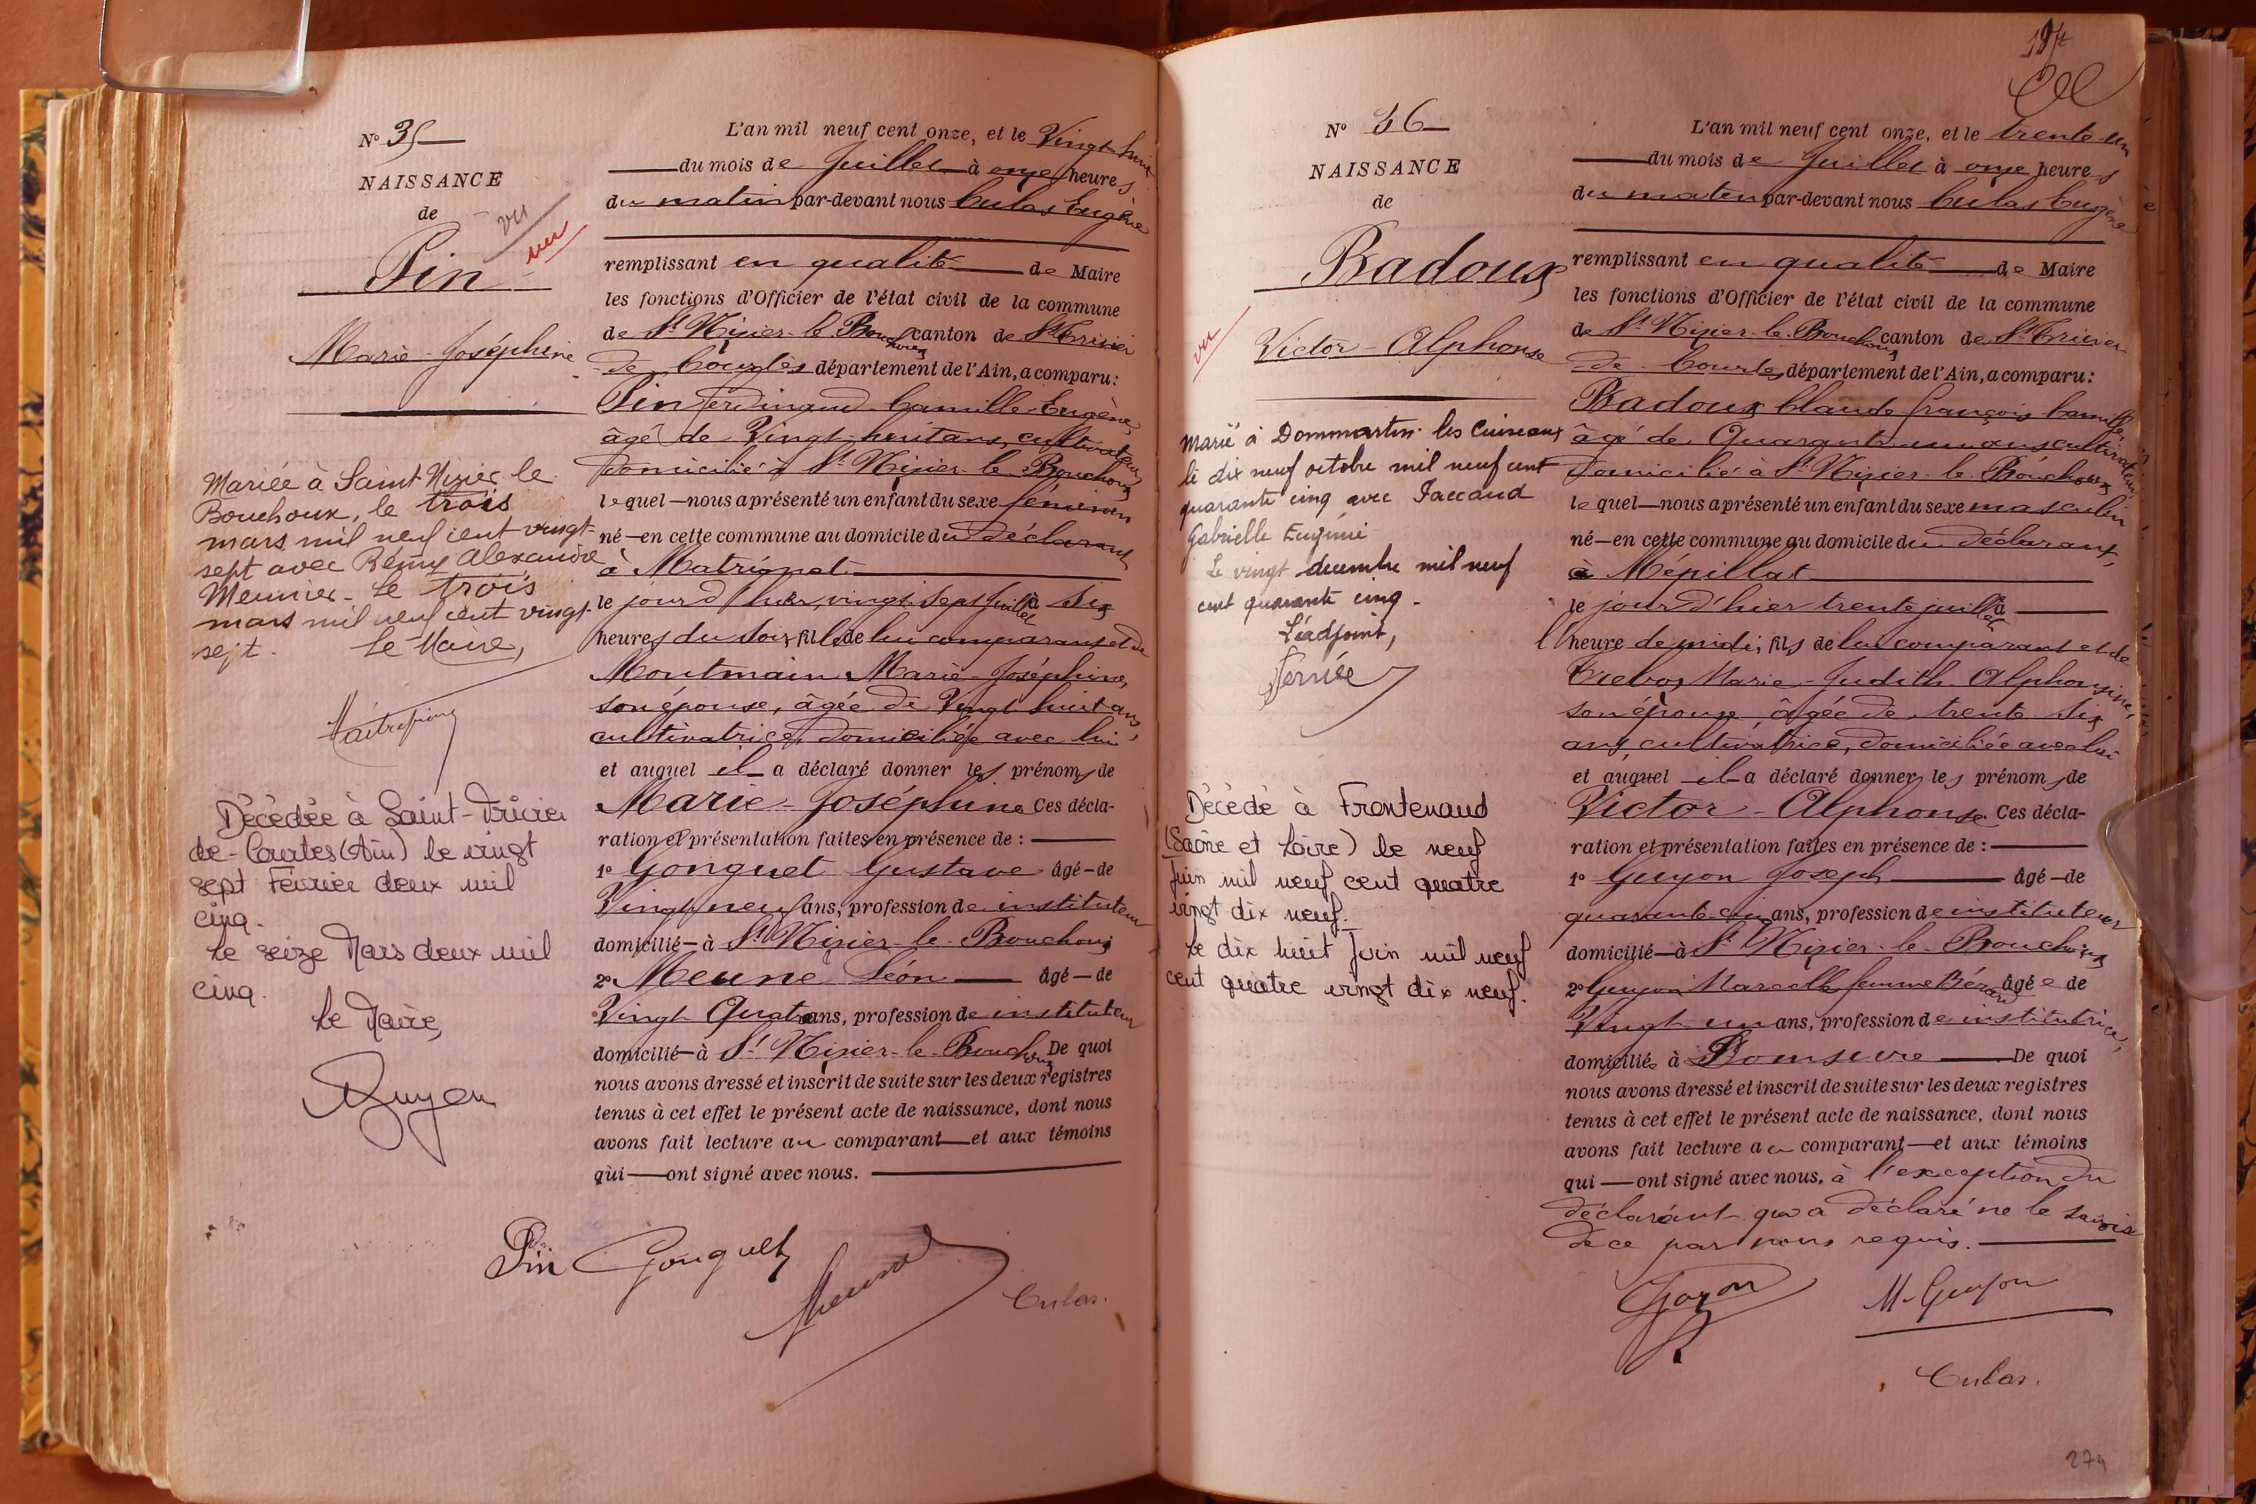 N° 35
NAISSANCE
de
Pin
vu
vu
Marie-Joséphine
Mariée à Saint-Nizier le
Bouchoux, le trois
mars mil neuf cent vingt-
sept avec Rémy Alexandre
Meunier. Le trois
mars mil neuf cent vingt-
sept. Le Maire,
Décédée à Saint-Trivier
de-Courtes (Ain) le vingt
sept Février deux mil
cinq.
Le seize Mars deux mil
cinq.
Le Maire,
Guyen
L'an mil neuf cent onze, et le Vingt-huit
du mois de Juillet à onze heures
du matin par-devant nous Culas Eugène
remplissant en qualité de Maire
les fonctions d'Officier de l'état civil de la commune
de St Nizier-le-Bouchoux canton de St Trivier
de Courtes département de l'Ain, a comparu:
Pin Ferdinand Camille Eugène,
âgé de Vingt huit ans, cultivateur,
domicilié à St Nizier-le-Bouchoux
lequel nous a présenté un enfant du sexe féminin
né en cette commune au domicile du déclarant
à Matrignat
le jour d'hier, vingt sept juillet à six
heures du soir, fille de lui comparant et de
Montmain Marie-Joséphine,
son épouse, âgée de Vingt huit ans,
cultivatrice, domiciliée avec lui
et auquel il a déclaré donner les prénoms de
Marie-Joséphine Ces décla-
ration et présentation faites en présence de :
1° Gonguet Gustave âgé de
Vingt neuf ans, profession de instituteur
domicilié à St Nizier-le-Bouchoux
2° Meune Léon âgé de
Vingt Quatre ans, profession de instituteur
domicilié à St Nizier-le-Bouchoux De quoi
nous avons dressé et inscrit de suite sur les deux registres
tenus à cet effet le présent acte de naissance, dont nous
avons fait lecture au comparant et aux témoins
qui ont signé avec nous.
Pin Gonguet
Meune
Culas.
N° 36
NAISSANCE
de
Badoux
vu
Victor-Alphonse
Marié à Dommartin-les Cuiseaux
le dix neuf octobre mil neuf cent
quarante cinq avec Jaccaud
Gabrielle Eugénie
Le vingt décembre mil neuf
cent quarante cinq.
L'adjoint,
Décédé à Frontenaud
(Saône et Loire) le neuf
Juin mil neuf cent quatre
vingt dix neuf.
Le dix huit Juin mil neuf
cent quatre vingt dix neuf.
L'an mil neuf cent onze, et le trente-un
du mois de Juillet à onze heures
du matin par-devant nous Culas Eugène
remplissant en qualité de Maire
les fonctions d'Officier de l'état civil de la commune
de St Nizier-le-Bouchoux canton de St Trivier
de Courtes département de l'Ain, a comparu:
Badoux Claude François Camille,
âgé de Quarante un ans, cultivateur,
domicilié à St Nizier-le-Bouchoux
lequel nous a présenté un enfant du sexe masculin
né en cette commune au domicile du déclarant,
à Mépillat
le jour d'hier trente juillet à
l'heure de midi, fils de lui comparant et de
Marie-Judith Alphonsine,
son épouse, âgée de trente six
ans, cultivatrice, domiciliée avec lui
et auquel il a déclaré donner les prénoms de
Victor-Alphonse Ces décla-
ration et présentation faites en présence de :
1° Guyon Joseph âgé de
quarante cinq ans, profession de instituteur
domicilié à St Nizier-le-Bouchoux
2° Guyon Marcelle femme Bérard âgée de
Vingt un ans, profession de institutrice,
domiciliée à De quoi
nous avons dressé et inscrit de suite sur les deux registres
tenus à cet effet le présent acte de naissance, dont nous
avons fait lecture au comparant et aux témoins
qui ont signé avec nous, à l'exception du
déclarant qui a déclaré ne le savoir
de ce par nous requis.
Guyon
M. Guyon
Culas.
274